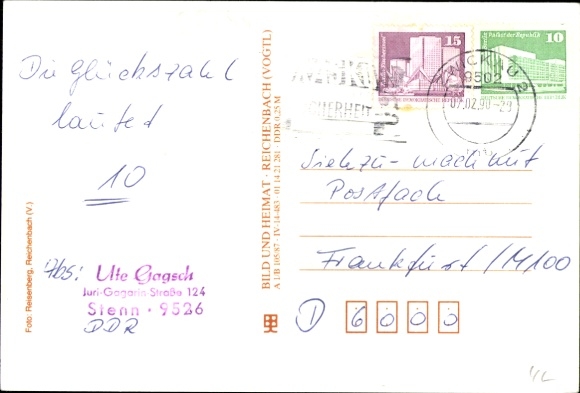 Die Glückszahl
lautet
10
Abs:
Ute Gagsch
Juri-Gagarin-Straße 124
Stenn · 9526
DDR
Foto: Reisenberg, Reichenbach (V.)
BILD UND HEIMAT · REICHENBACH (VOGTL)
A 1/B 105/87 · IV-14-483 · 01 14 21 281 · DDR 0,25 M
15
Palast der Republik
10
ZWICKAU 2
9502
07.02.90-20
Sieh zu - mach mit
Postfach
Frankfurt/M 100
D 6000